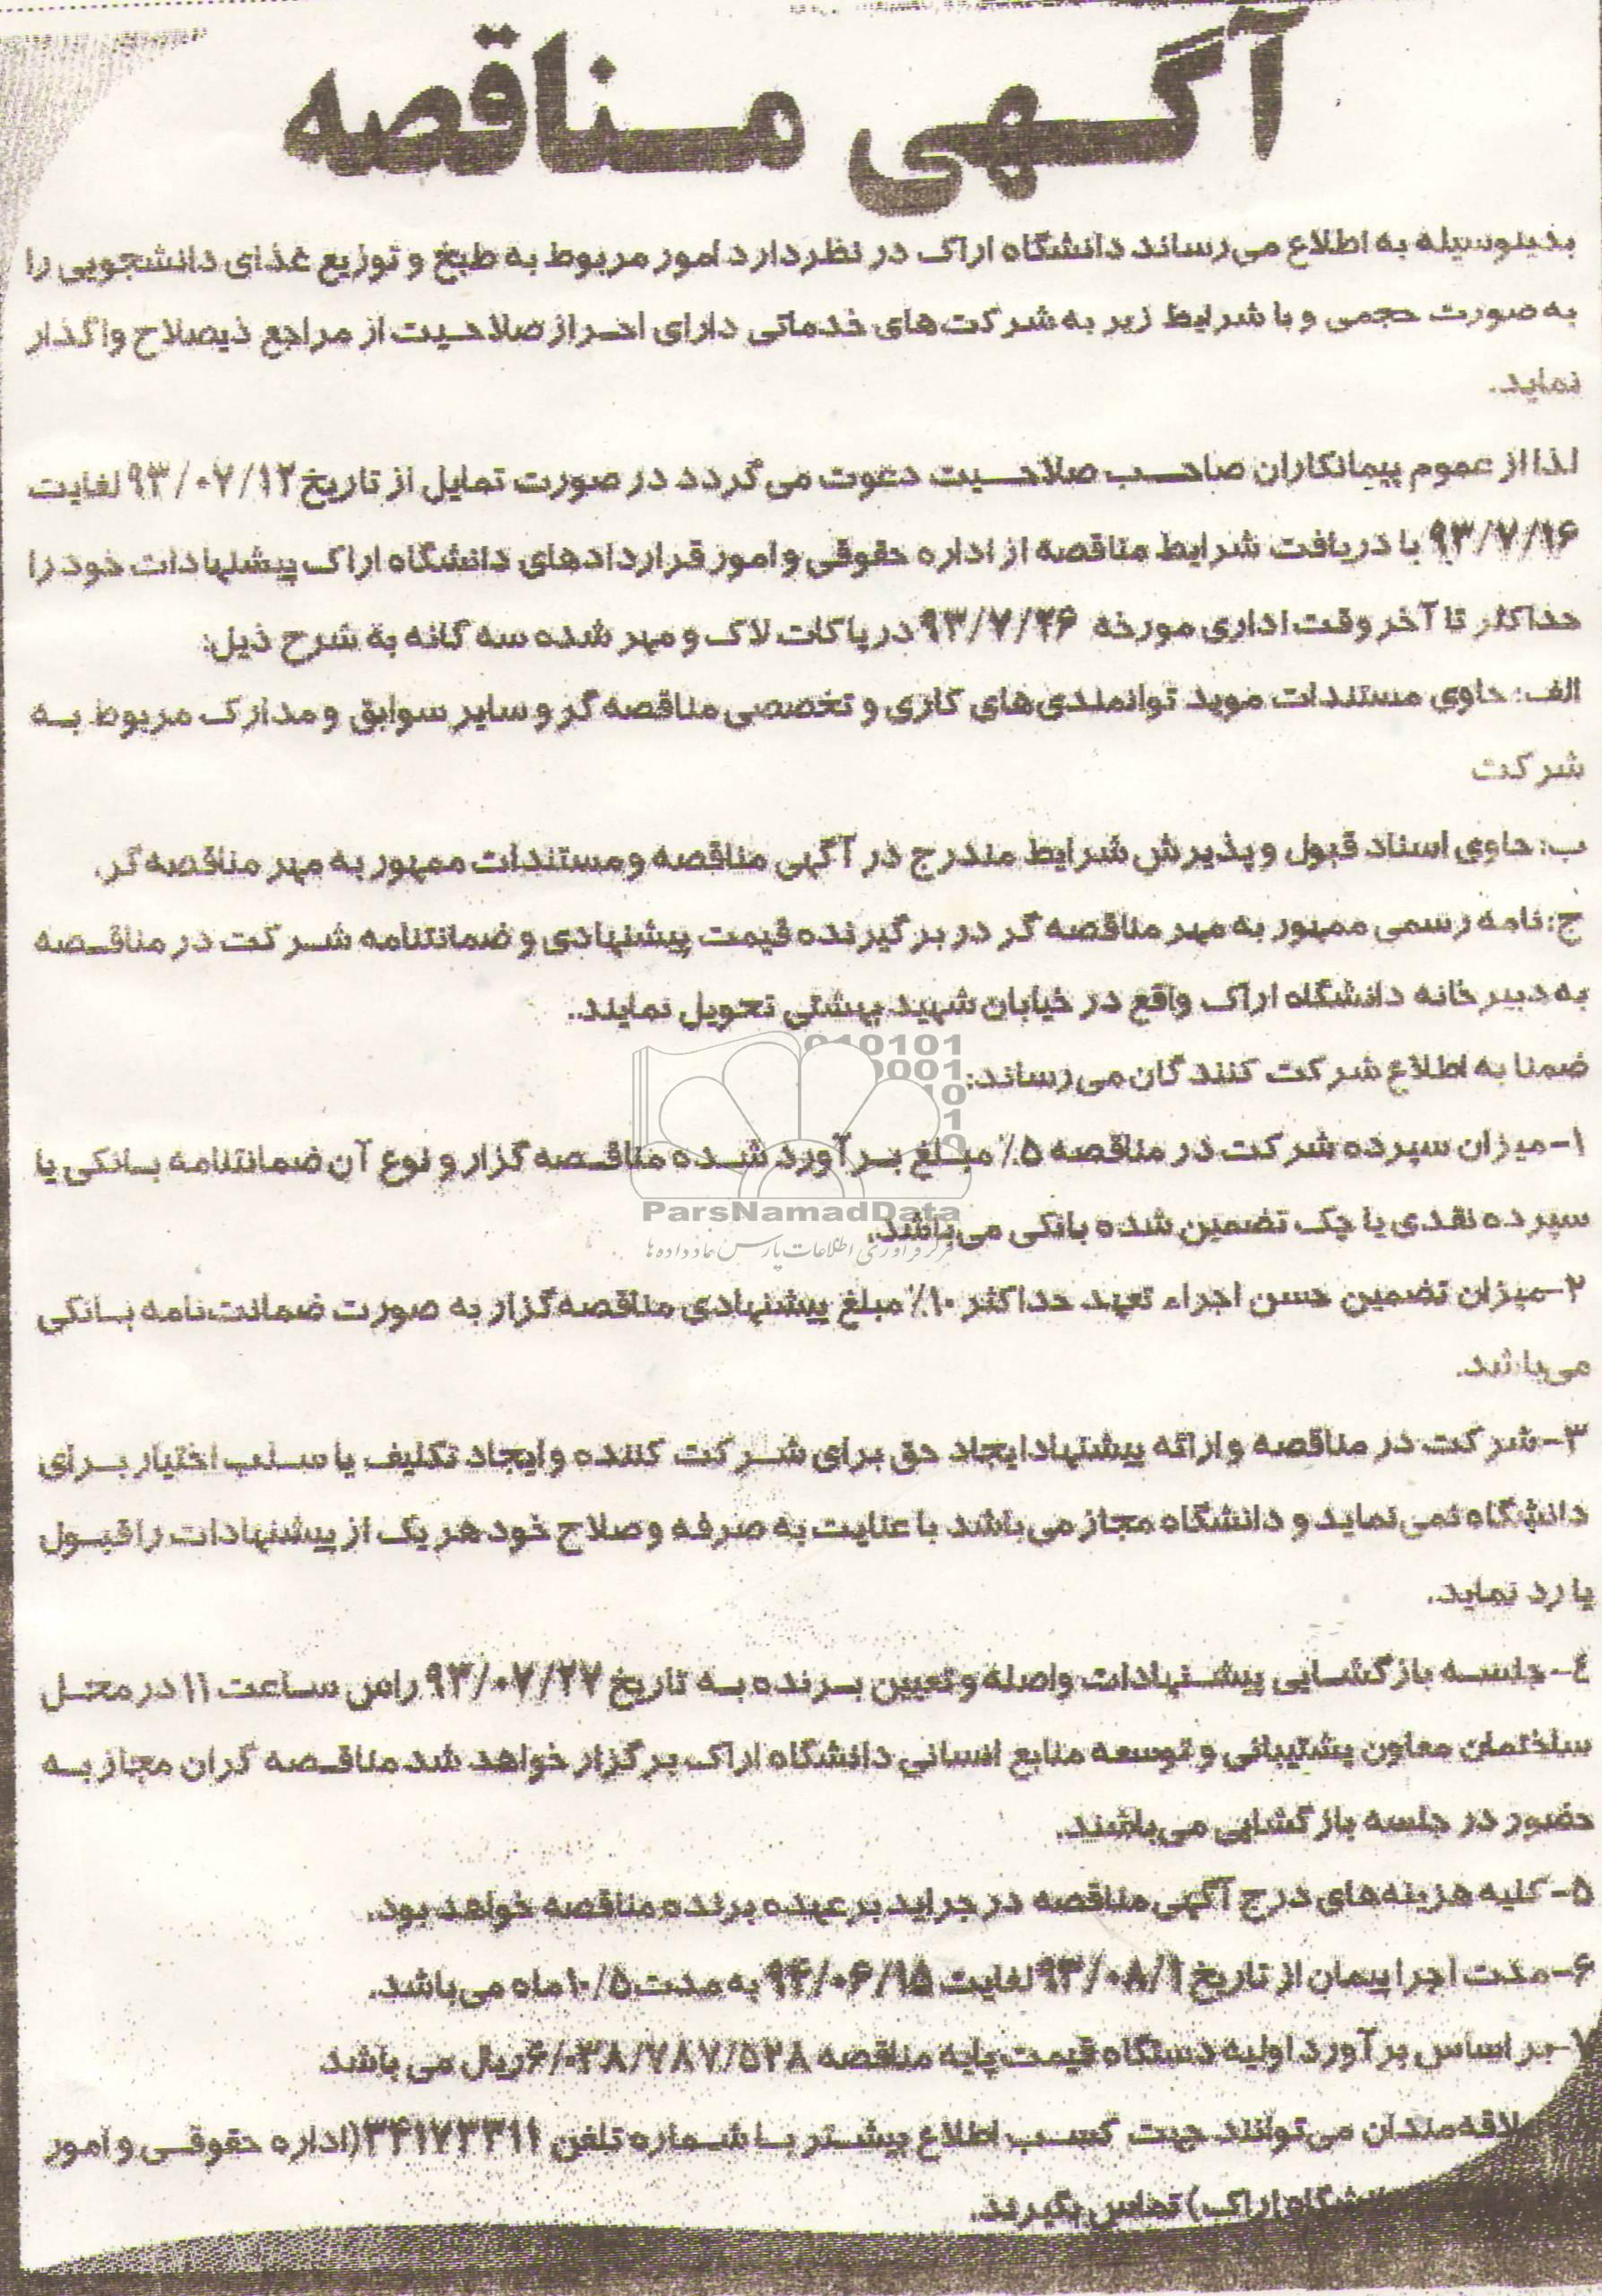 آگهی مناقصه
بدینوسیله به اطلاع می‌رساند دانشگاه اراک در نظر دارد امور مربوط به طبخ و توزیع غذای دانشجویی را
به صورت حجمی و با شرایط زیر به شرکت‌های خدماتی دارای احراز صلاحیت از مراجع ذیصلاح واگذار
نماید.
لذا از عموم پیمانکاران صاحب صلاحیت دعوت می گردد در صورت تمایل از تاریخ ۹۳/۰۷/۱۲ لغایت
۹۳/۷/۱۶ با دریافت شرایط مناقصه از اداره حقوقی و امور قراردادهای دانشگاه اراک پیشنهادات خود را
حداکثر تا آخر وقت اداری مورخه ۹۳/۷/۲۶ در پاکات لاک و مهر شده سه گانه به شرح ذیل:
الف: حاوی مستندات موید توانمندی‌های کاری و تخصصی مناقصه گر و سایر سوابق و مدارک مربوط به
شرکت
ب: حاوی اسناد قبول و پذیرش شرایط مندرج در آگهی مناقصه و مستندات ممهور به مهر مناقصه‌گر.
ج: نامه رسمی ممهور به مهر مناقصه گر در بر گیرنده قیمت پیشنهادی و ضمانتنامه شرکت در مناقصه
به دبیر خانه دانشگاه اراک واقع در خیابان شهید بهشتی تحویل نمایند.
ضمنا به اطلاع شرکت کنندگان می‌رساند:
۱- میزان سپرده شرکت در مناقصه ۵٪ مبلغ برآورد شده مناقصه گزار و نوع آن ضمانتنامه بانکی یا
سپرده نقدی یا چک تضمین شده بانکی می‌باشد.
ParsNamadData
مرکز فرآوری اطلاعات پارس نماد داده‌ها
۲- میزان تضمین حسن اجراء تعهد حداکثر ۱۰٪ مبلغ پیشنهادی مناقصه‌گزار به صورت ضمانت‌نامه بانکی
می‌باشد.
۳- شرکت در مناقصه و ارائه پیشنهاد ایجاد حق برای شرکت کننده و ایجاد تکلیف یا سلب اختیار برای
دانشگاه نمی‌نماید و دانشگاه مجاز می‌باشد با عنایت به صرفه و صلاح خود هر یک از پیشنهادات را قبول
یا رد نماید.
٤- جلسه بازگشایی پیشنهادات واصله و تعیین برنده به تاریخ ۹۳/۰۷/۲۷ راس ساعت ۱۱ در محل
ساختمان معاون پشتیبانی و توسعه منابع انسانی دانشگاه اراک برگزار خواهد شد مناقصه گران مجاز به
حضور در جلسه بازگشایی می‌باشند.
۵- کلیه هزینه‌های درج آگهی مناقصه در جراید بر عهده برنده مناقصه خواهد بود.
۶- مدت اجرا پیمان از تاریخ ۹۳/۰۸/۱ لغایت ۹۴/۰۶/۱۵ به مدت ۱۰/۵ ماه می‌باشد.
۷- بر اساس برآورد اولیه دستگاه قیمت پایه مناقصه ۶/۰۳۸/۷۸۷/۵۲۸ ریال می باشد
علاقه‌مندان می‌توانند جهت کسب اطلاع بیشتر با شماره تلفن ۳۴۱۷۳۳۱۱ (اداره حقوقی و امور
دانشگاه اراک) تماس بگیرند.